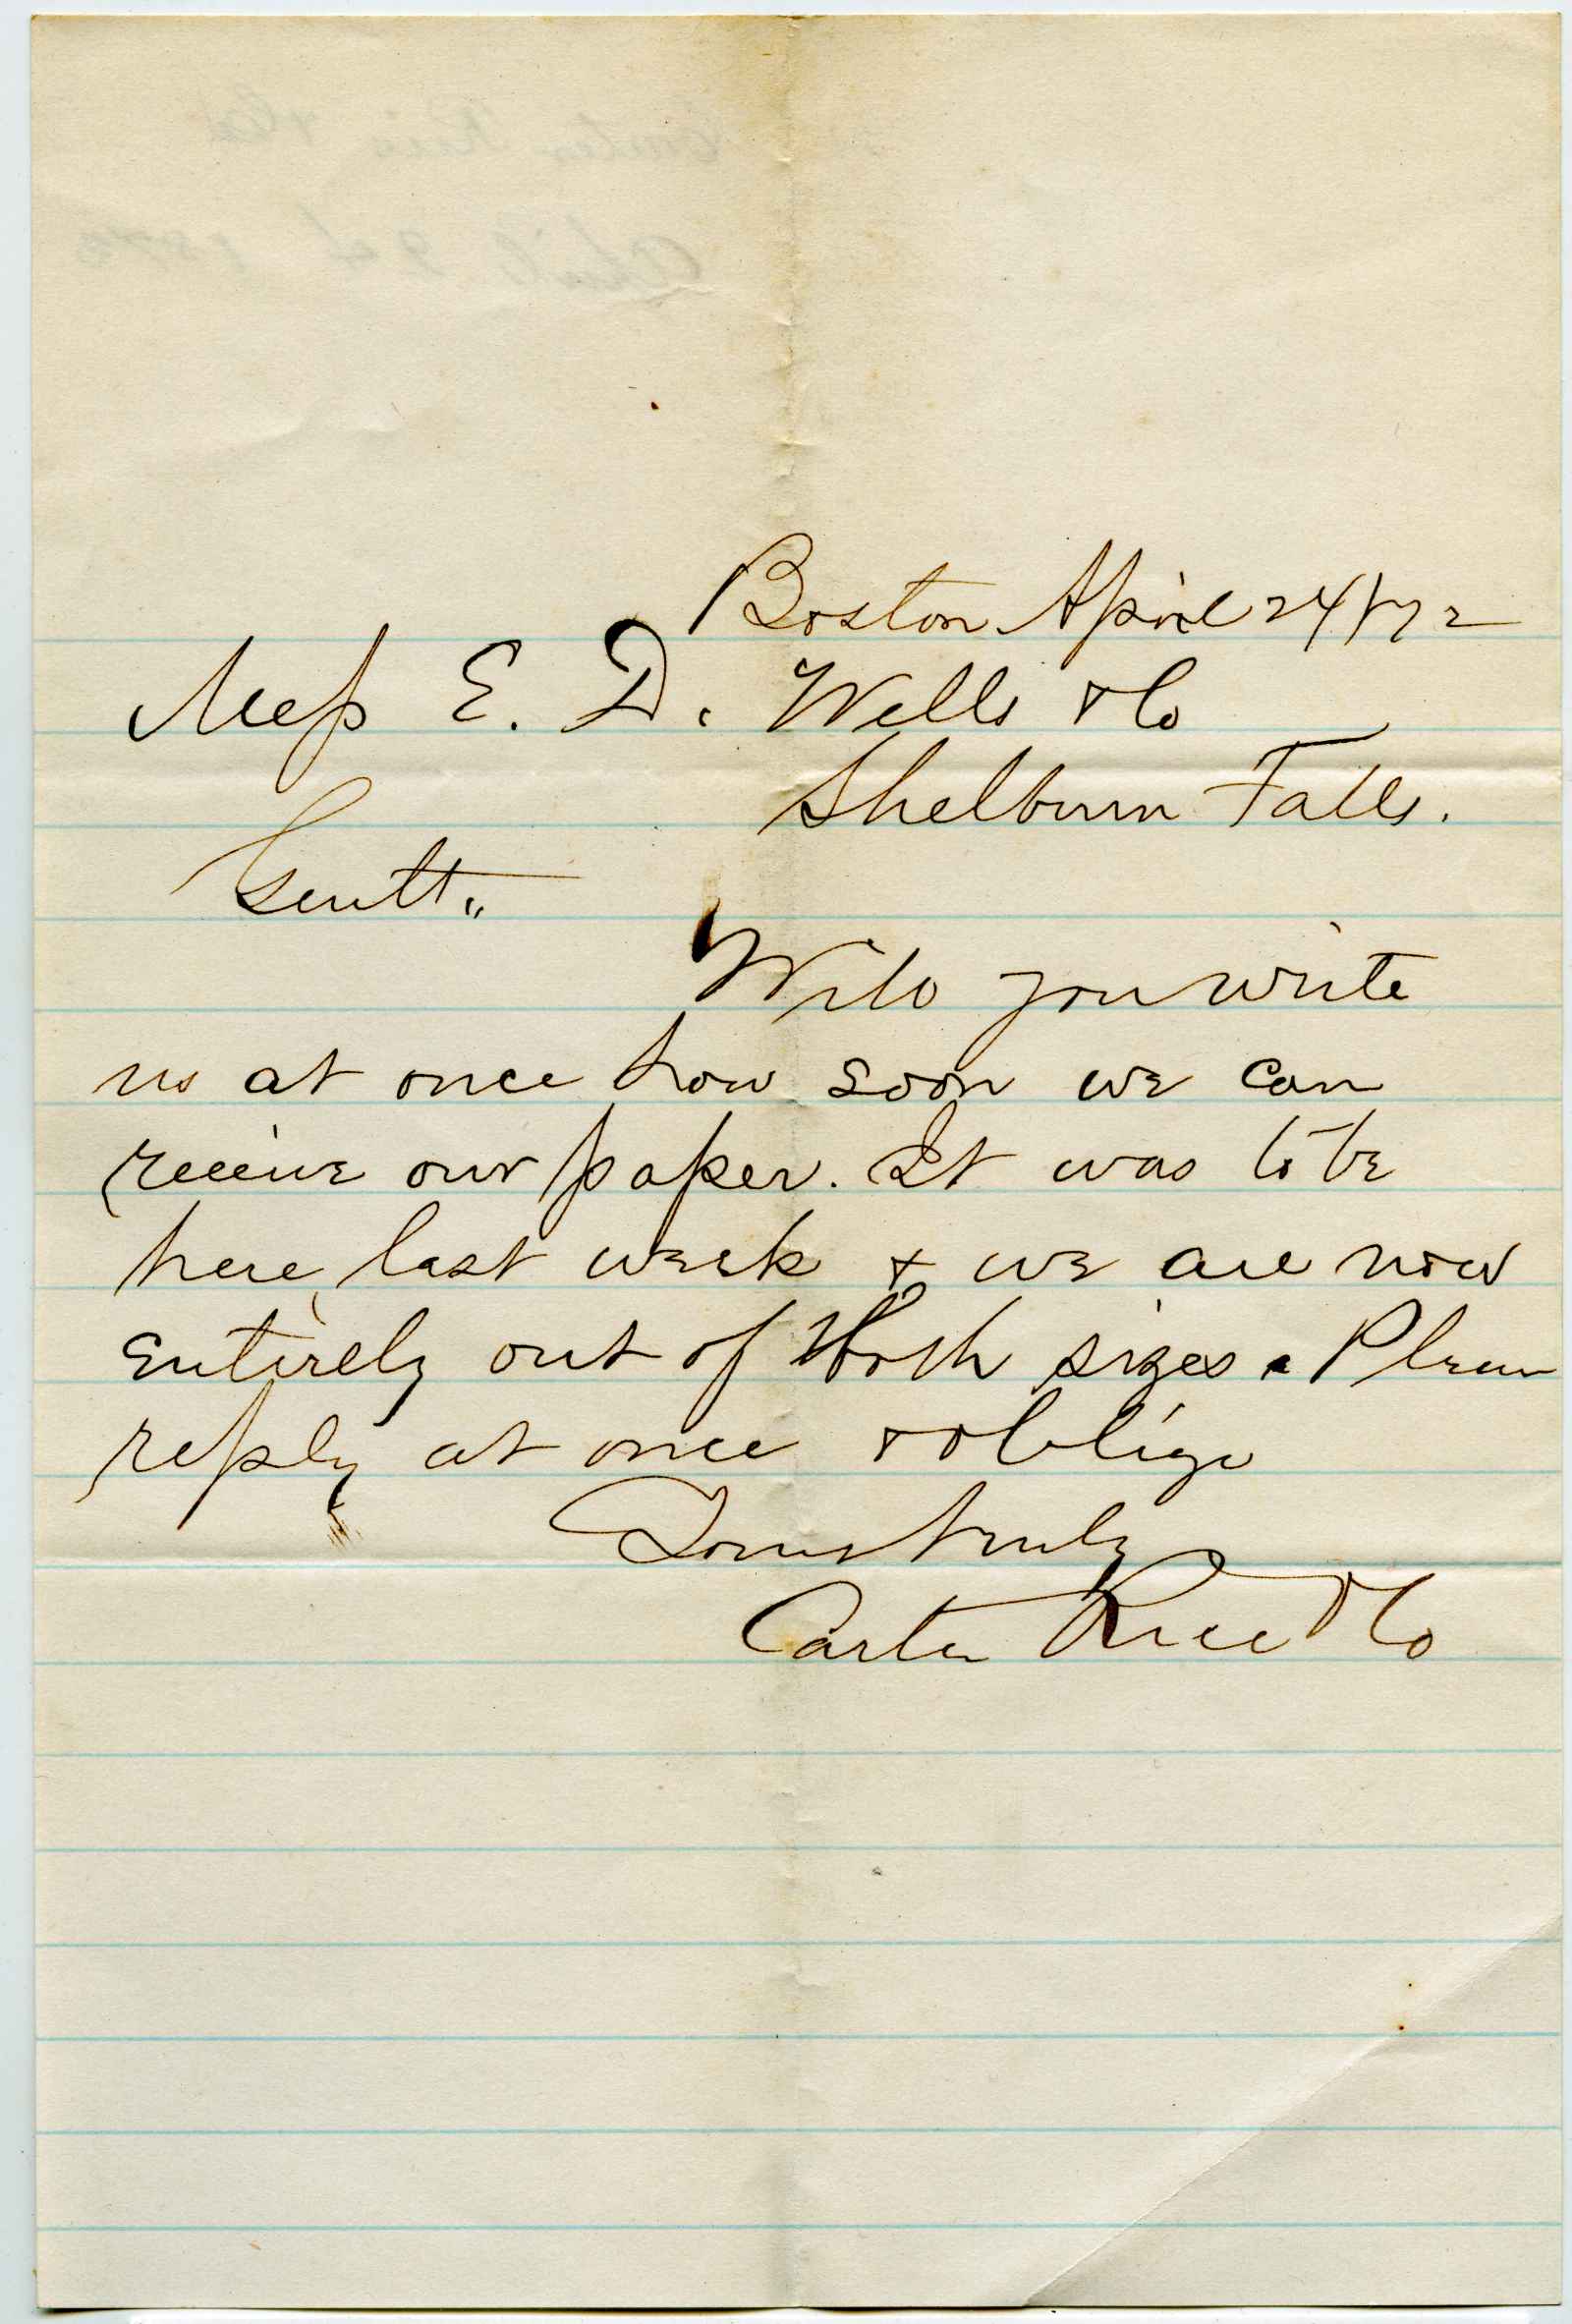 Boston April 24/72
Mess E. D. Wells & Co
Shelburn Falls.
Gentt"
Will you write
us at once how soon we can
receive our paper. It was to be
here last week & we are now
entirely out of both sizes. Please
reply at once & oblige
Yours truly
Carter Rice & Co